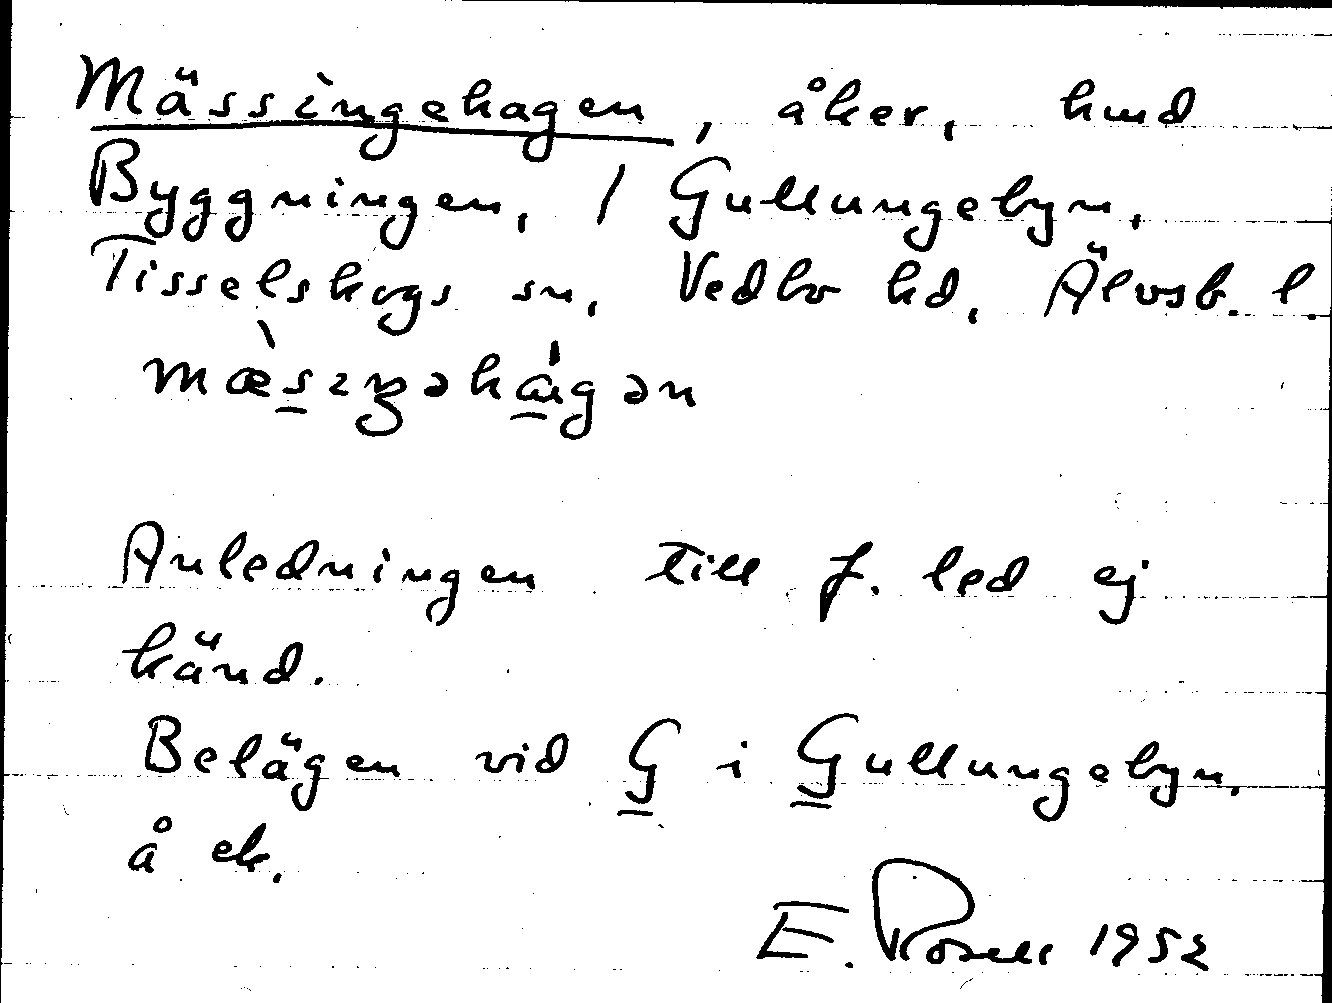 Mässingehagen, åker, hmd
Byggningen, 1 Gullungebyn,
Tisselskogs sn, Vedbo hd, Älvsb. l.
mæ̀sıŋəhágən
Anledningen till f. led ej
känd.
Belägen vid G i Gullungebyn.
å ek.
E. Rosell 1952